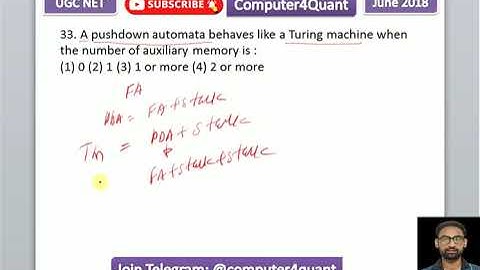 UGC NET
SUBSCRIBE
Computer4Quant
June 2018
33. A pushdown automata behaves like a Turing machine when
the number of auxiliary memory is :
(1) 0 (2) 1 (3) 1 or more (4) 2 or more
FA
PDA = FA + Stack
TM = PDA + Stack
FA + Stack + Stack
Join Telegram: @computer4quant